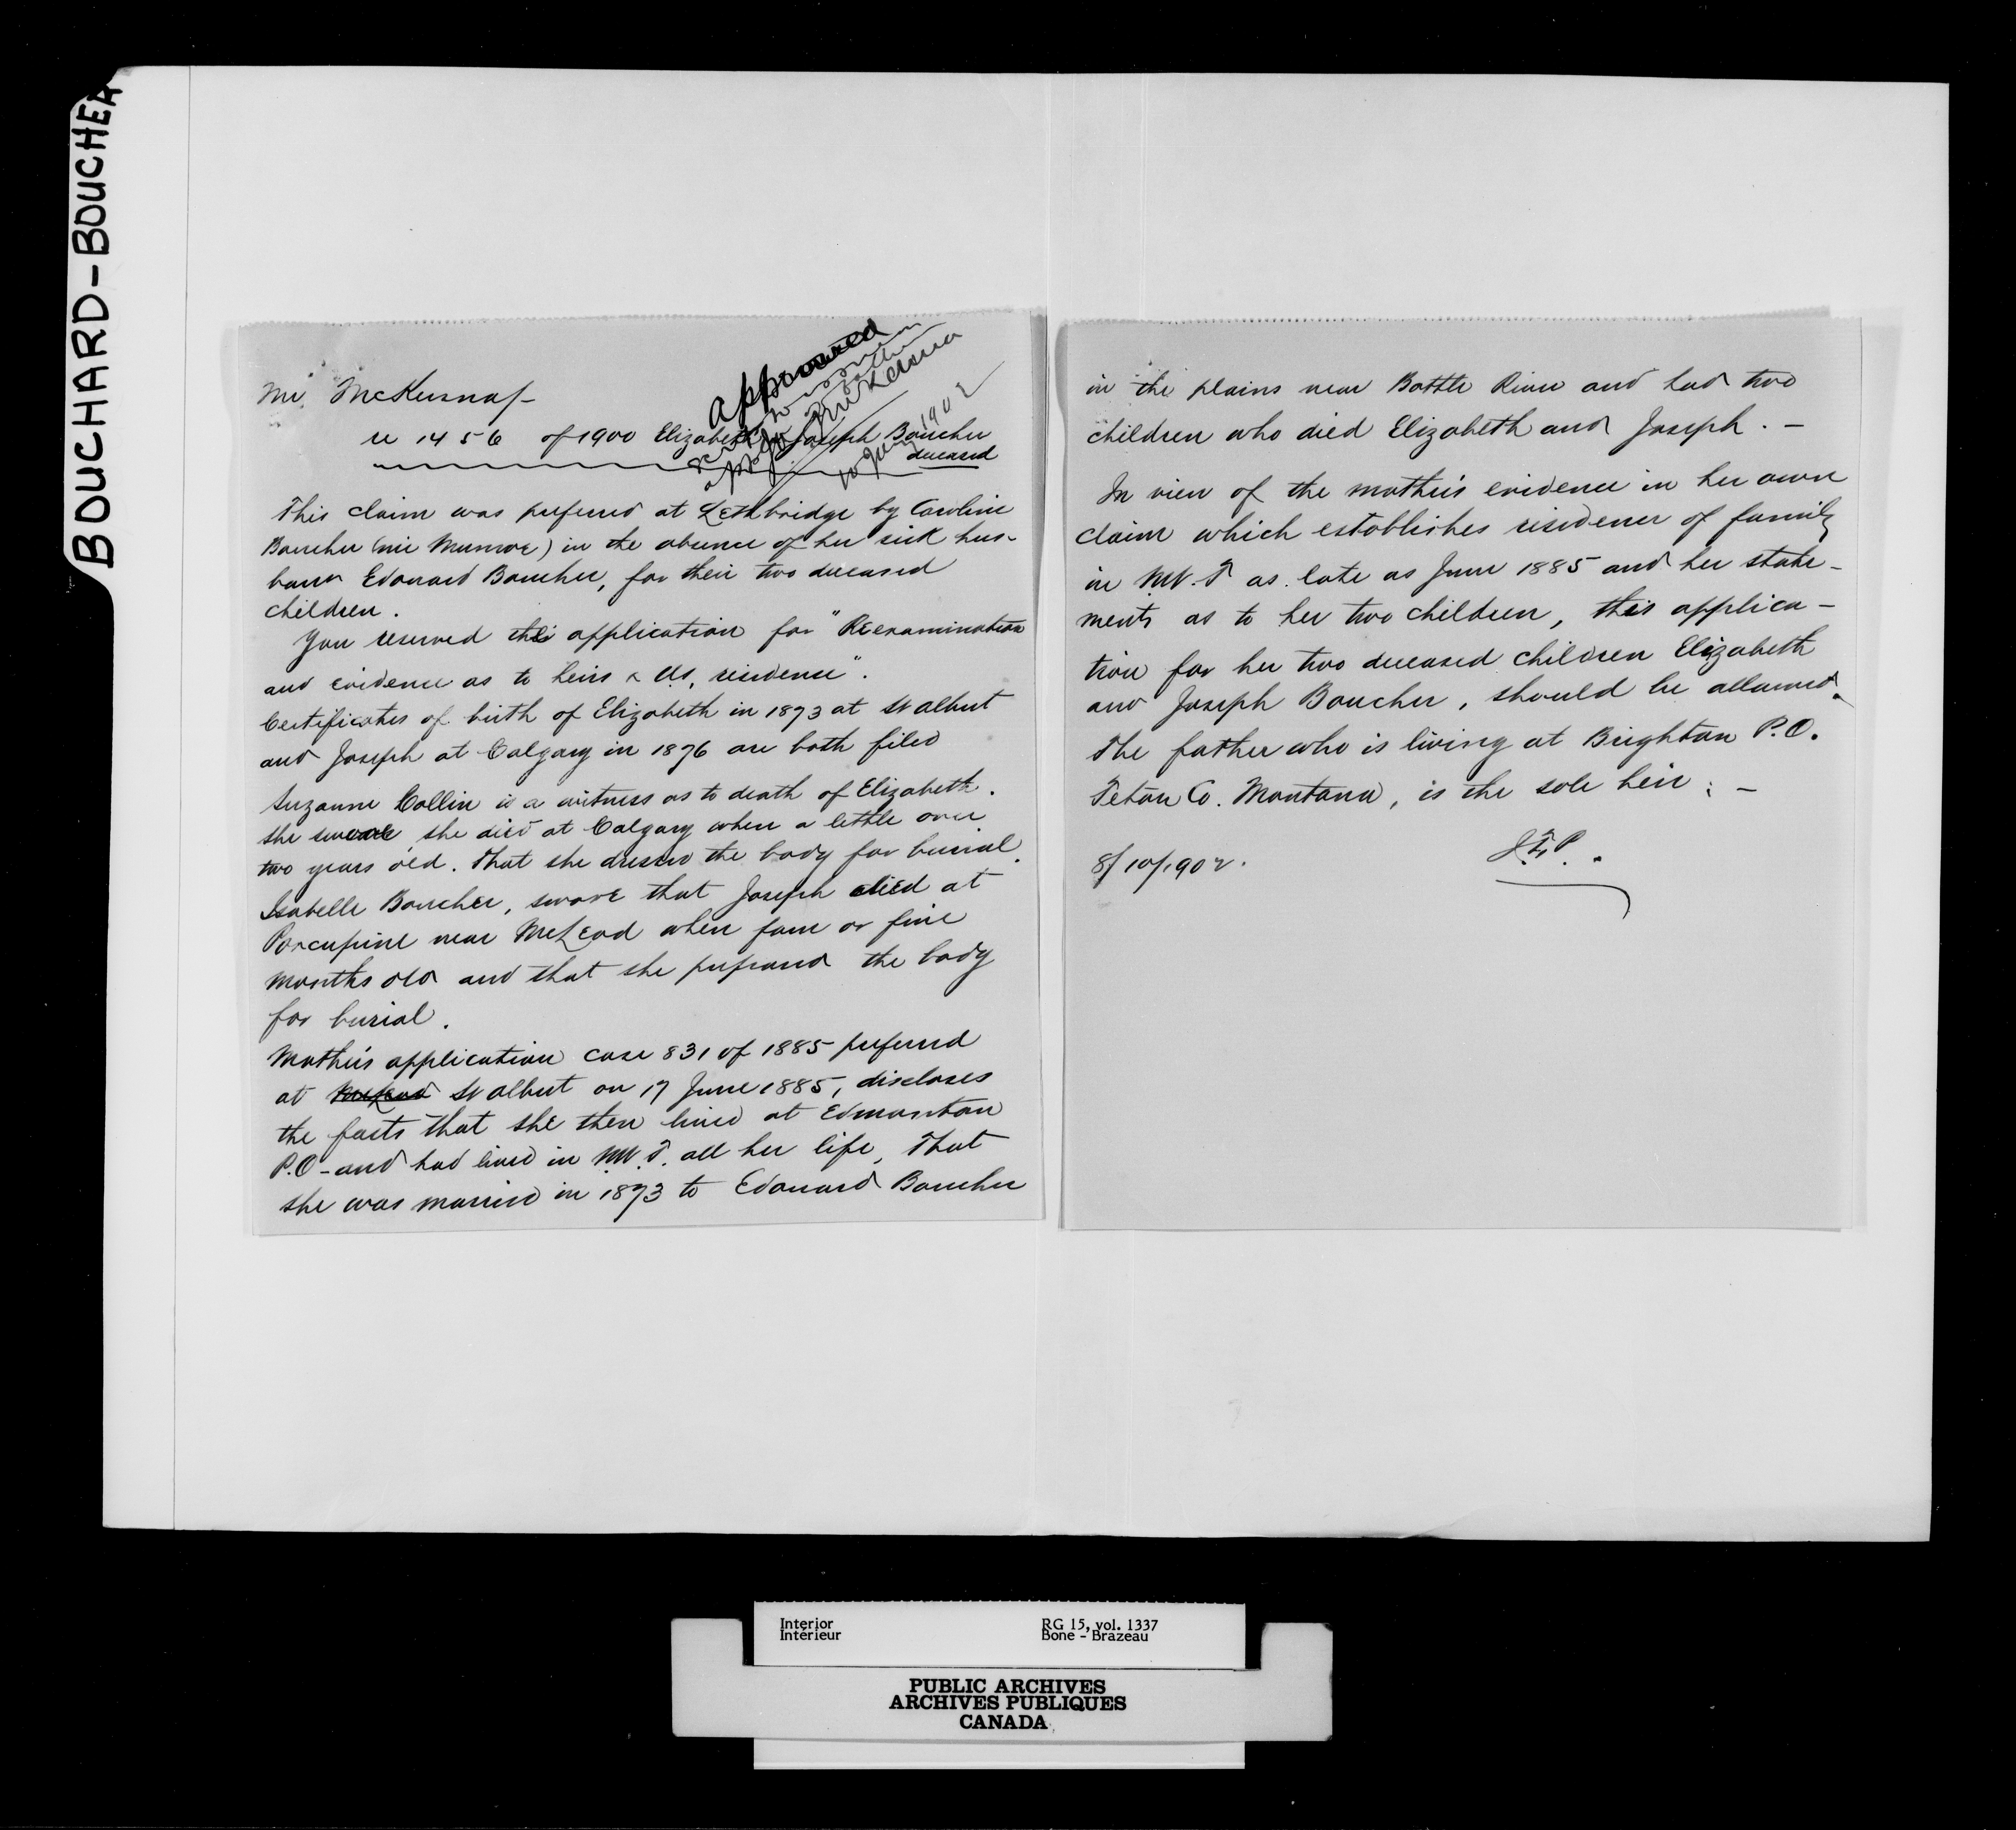 BOUCHARD-BOUCHER
Approved
scrip to issue in
McKenna
1902
Mr. McKenna/-
re 1456 of 1900 Elizabeth & Joseph Boucher
deceased
This claim was preferred at Lethbridge by Caroline
Boucher (nie Munroe) in the absence of her sick hus-
band Edouard Boucher, for their two deceased
children.
You reserved this application for "Reexamination
and evidence as to heirs & U.S. residence".
Certificates of birth of Elizabeth in 1873 at St Albert
and Joseph at Calgary in 1876 are both filed
Suzanne Collin is a witness as to death of Elizabeth.
She swore she died at Calgary when a little over
two years old. That she dressed the body for burial.
Isabelle Boucher, swore that Joseph died at
Porcupine near McLeod when four or five
months old and that she prepared the body
for burial.
Mother's application case 831 of 1885 preferred
at McLeod St Albert on 17 June 1885, discloses
the facts that she then lived at Edmonton
P.O - and had lived in NW.T. all her life, That
she was married in 1873 to Edouard Boucher
in the plains near Battle River and had two
children who died Elizabeth and Joseph. -
In view of the mother's evidence in her own
claim which establishes residence of family
in NW.T as late as June 1885 and her state-
ments as to her two children, this applica-
tion for her two deceased children Elizabeth
and Joseph Boucher, should be allowed.
The father who is living at Brighton P.O.
Teton Co. Montana, is the sole heir; -
8/10/1902.
Interior
Intérieur
RG 15, vol. 1337
Bone - Brazeau
PUBLIC ARCHIVES
ARCHIVES PUBLIQUES
CANADA